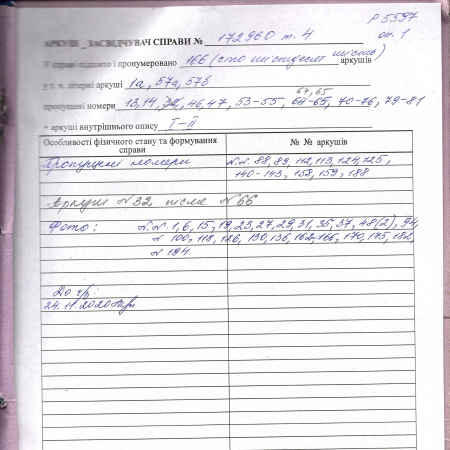 Р 5597
оп. 1
АРКУШ _ ЗАСВІДЧУВАЧ СПРАВИ № 172960 т. 4
У справі підшито і пронумеровано 166 (сто шістдесят шість) аркушів
у т. ч. літерні аркуші 1а, 57а, 57б
64, 65
пропущені номери 13, 14, 32, 46, 47, 53-55, 64-65, 70-76, 79-81
+ аркуші внутрішнього опису I-II
Особливості фізичного стану та формування справи
№ № аркушів
Пропущені номери N.N. 88, 89, 112, 113, 124, 125,
140-143, 158, 159, 188
Аркуш N 32 після N 66
Фото: N.N 1, 6, 15, 19, 23, 27, 29, 31, 35, 37, 48(2), 94,
N 100, 118, 126, 130, 136, 162, 166, 170, 175, 182,
N 184
24. 2020